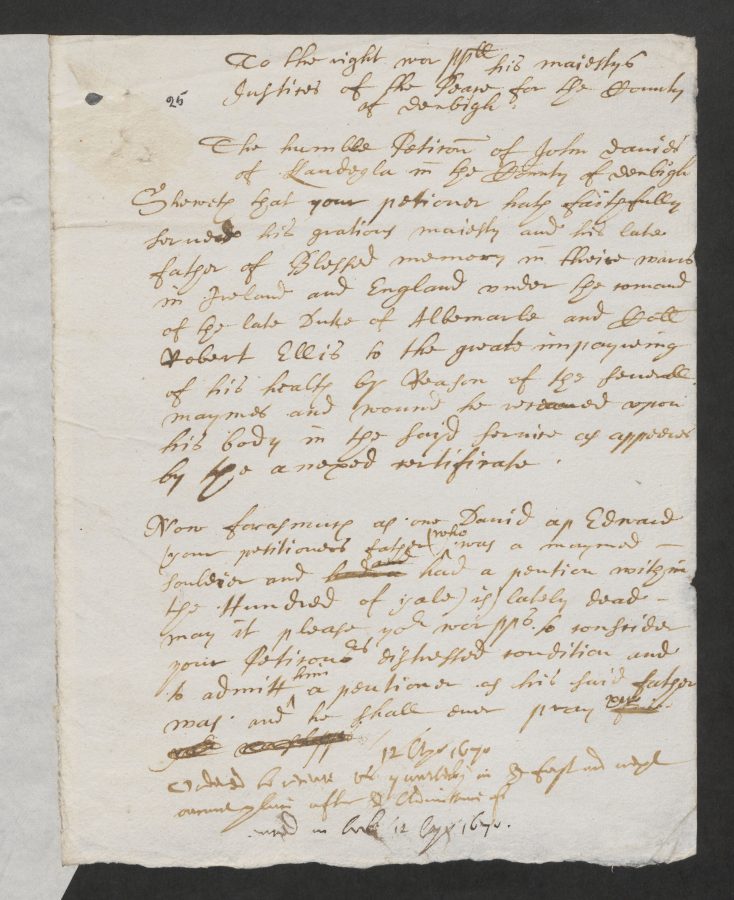 To the right wor ppll his maiestys
Justices of the Peace for the County
of denbigh.
25
The humble Peticon of John Davies
of Llandegla in the County of denbigh
Sheweth that your petioner hath faithfully
served his gratious maiesty and his late
father of Blessed memory in theire warrs
in Ireland and England vnder the comand
of the late Duke of Albemarle and Coll
Robert Ellis to the greate impayreing
of his health by Reason of the severall
maymes and wound he receaued vpon
his body in the said service as appeeres
by the anexed certificate.
Now forasmuch as one David ap Edward
(your petitioners father (who was a maymed
souldier and had a pention within
the Hundred of yale) is) lately dead
may it please yor worpps to conside
your Peticoners distressed condition and
to admitt him a pentioner as his said father
was. and he shall ever pray
12 1670
Ordered to receive quarterly in
after
in 12 1670.